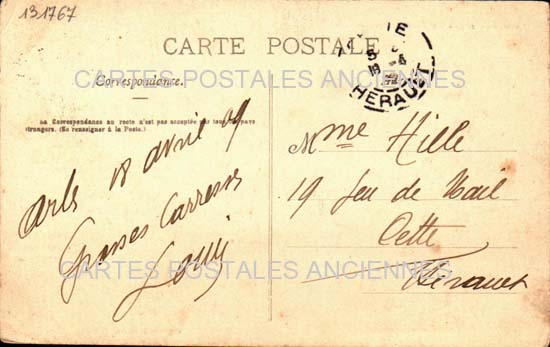 131767
CARTE POSTALE
Correspondance.
La Correspondance au recto n'est pas acceptée par tous pays
étrangers. (Se renseigner à la Poste.)
HERAULT
CARTES POSTALES ANCIENNES
Arles 18 avril 09
Grosses Caresses
Louis
Mme Hille
19 Jeu de Mail
Cette
Hérault
CARTES POSTALES ANCIENNES